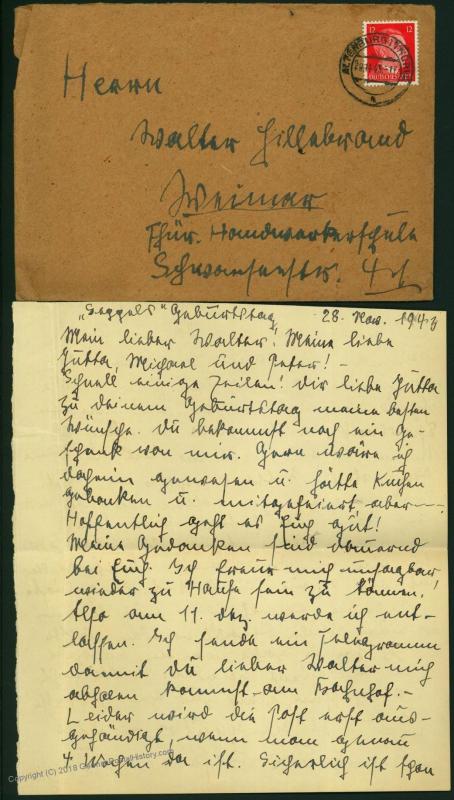 12 12
DEUTSCHES REICH
ALTENBURG (THÜR)
Herrn
Walter Hillebrand
Weimar
Thür. Handwerkerschule
Schwanseestr.
"Seppels" Geburtstag 28. Nov. 1943
Mein lieber Walter! Meine liebe
Jutta, Michael und Peter! –
Schnell einige Zeilen! Dir liebe Jutta
zu deinem Geburtstag meine besten
Wünsche. Du bekommst noch ein Ge-
schenk von mir. Gern wäre ich
daheim gewesen u. hätte Kuchen
gebacken u. mitgefeiert aber —.
Hoffentlich geht es Euch gut!
Meine Gedanken sind dauernd
bei Euch. Ich freue mich unsagbar
wieder zu Hause sein zu können.
Also am 11. Dez. werde ich ent-
lassen. Ich sende ein Telegramm
damit du lieber Walter mich
abholen kommst am Bahnhof. –
Leider wird die Post erst aus-
gehändigt, wenn man genau
4 Wochen da ist. Sicherlich ist schon
Copyright (C) 2018 GermanPostalHistory.com